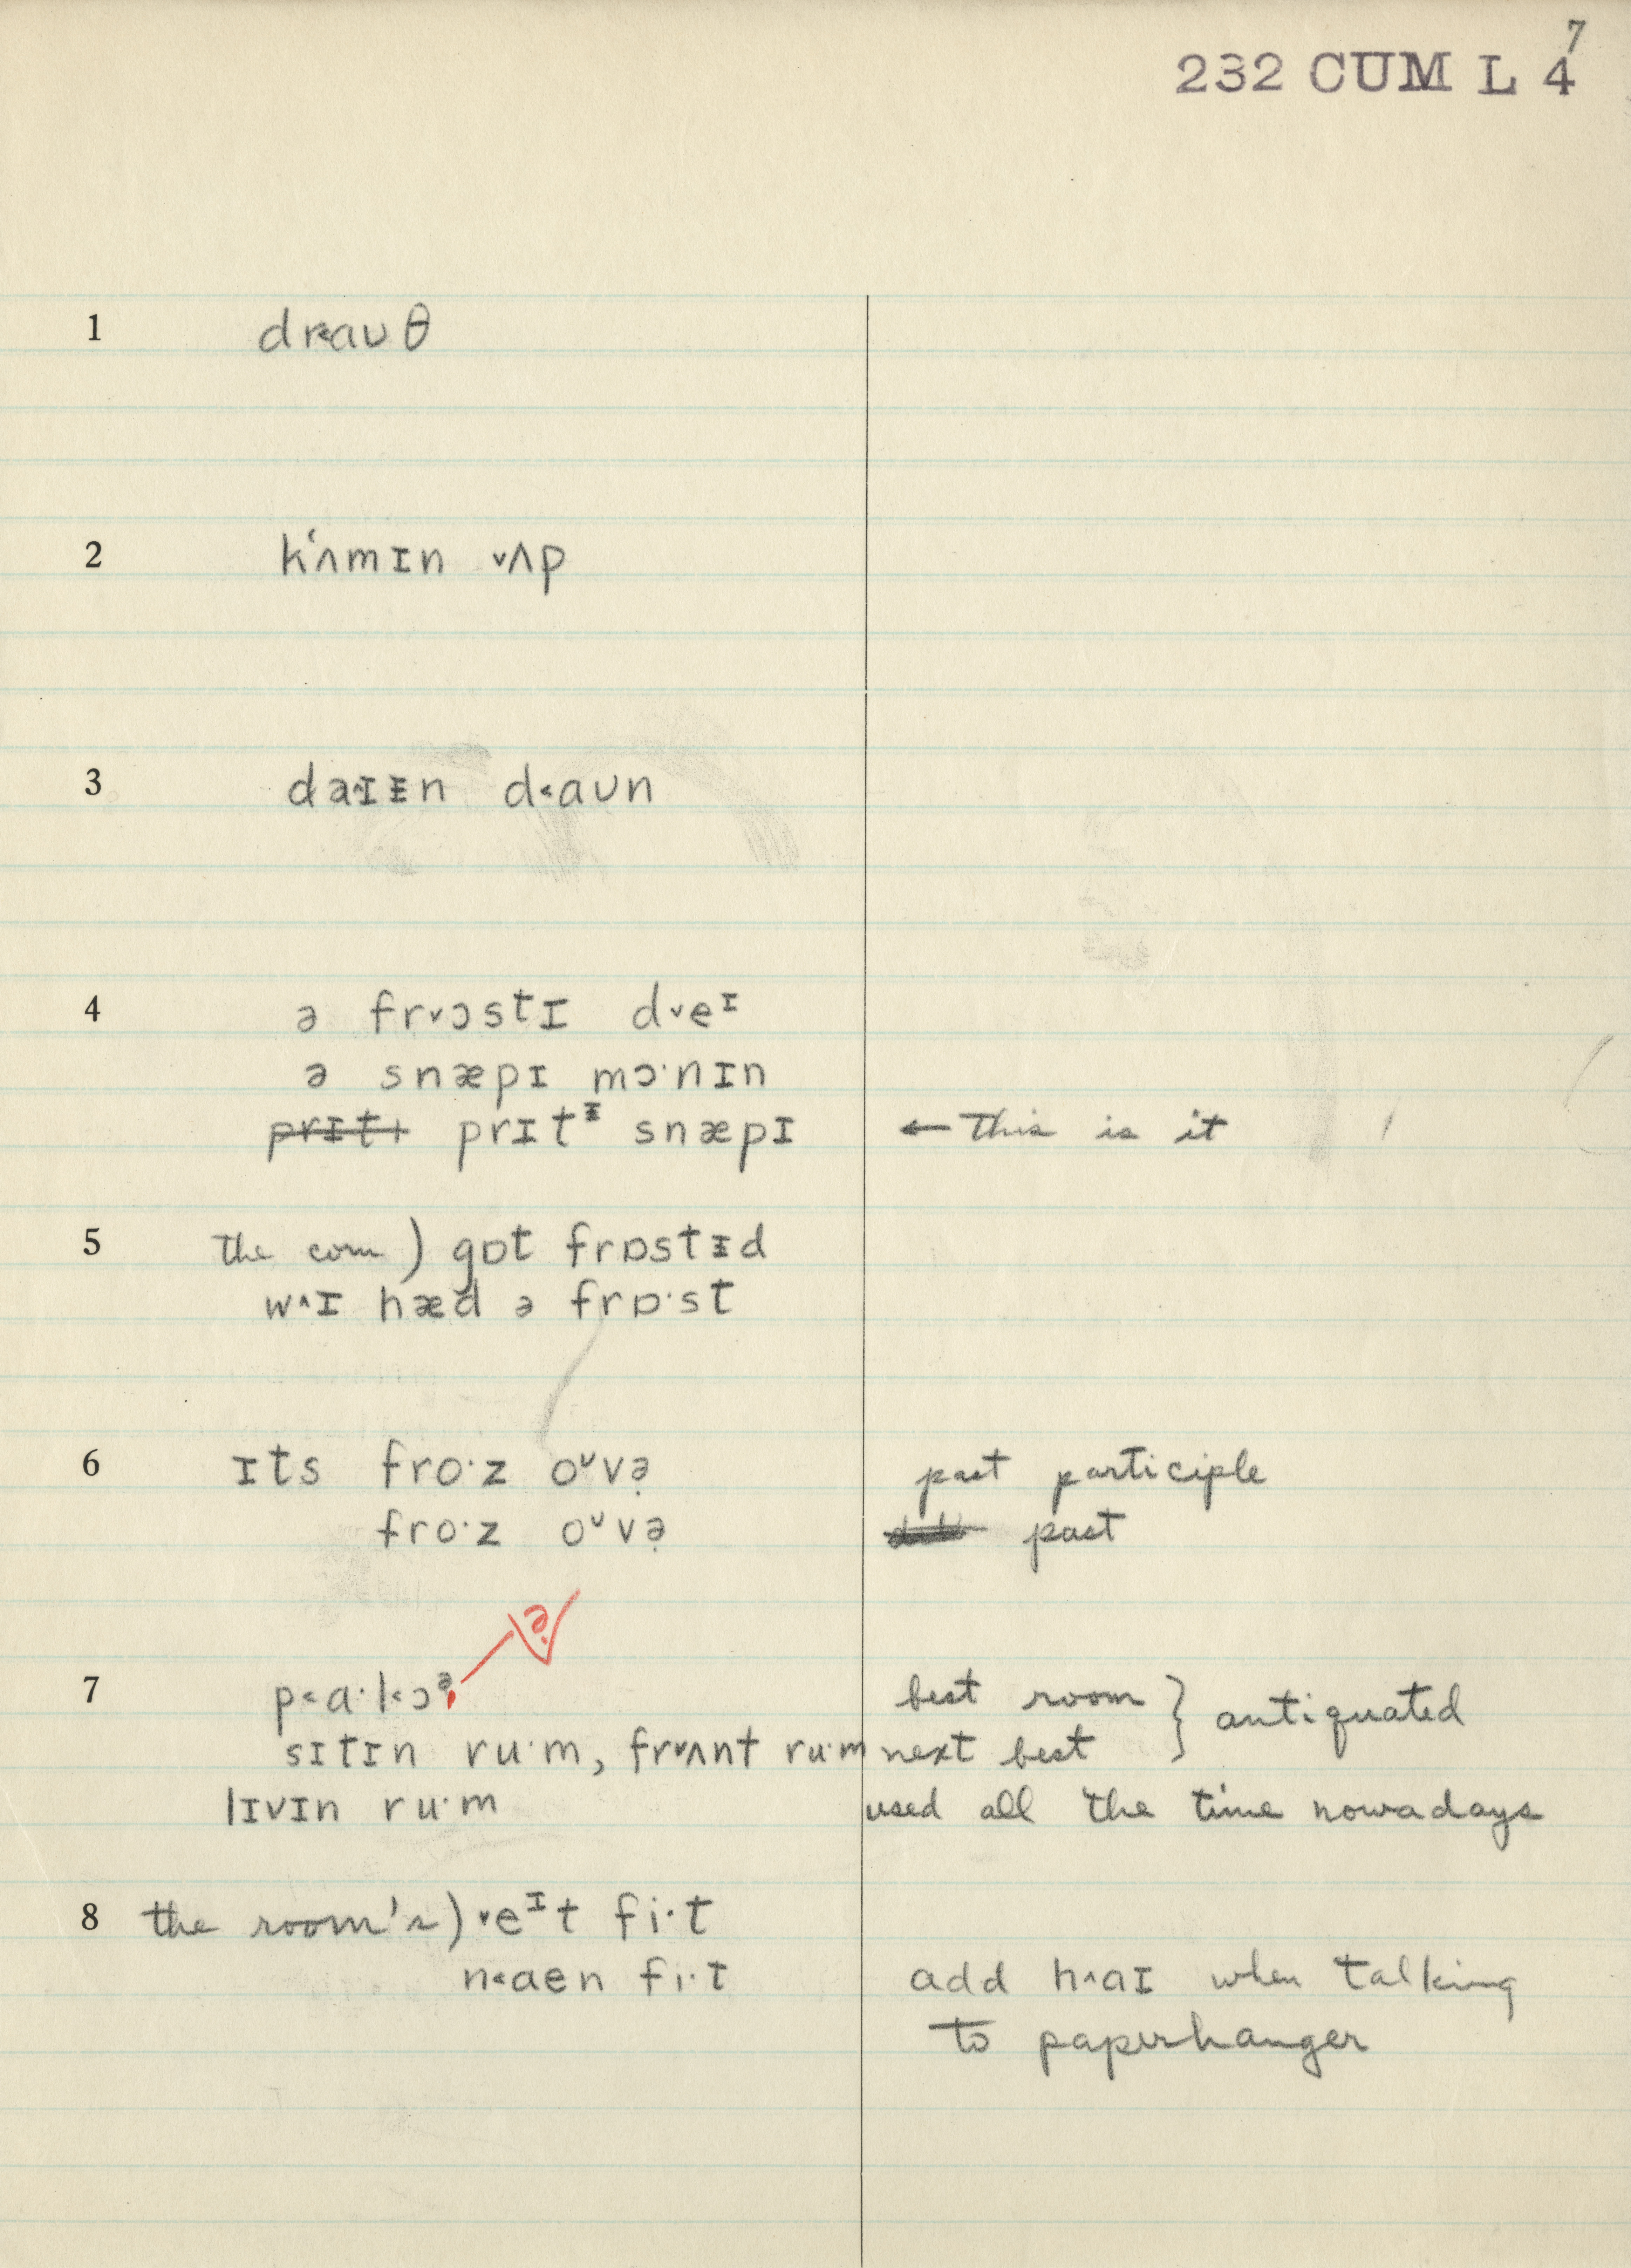 7
232 CUM L 4
1 dr˂aʊθ
2 k‘ʌmɪn ˅ʌp
3 da˄ɪᵻn d˂aʊn
4 ə fr˅ɔstɪ d˅eᶦ
ə snæpɪ mɔ·nɪn
prɪtɨ prɪtᵻ snæpɪ ← This is it
5 The corn ) gɒt frɒstᵻd
w˄ɪ hæd ə frɒ·st
6 ɪts fro·z oᶷvə̣ past participle
fro·z oᶷvə̣ past
ə̣
7 p˂a·l˂ɔə̣ best room } antiquated
sɪtɪn ru·m, fr˅ʌnt ru·m next best
lɪvɪn ru·m used all the time nowadays
8 the room's ) ˅eᶦt fi·t
n˂aen fi·t add h˄aɪ when talking
to paperhanger